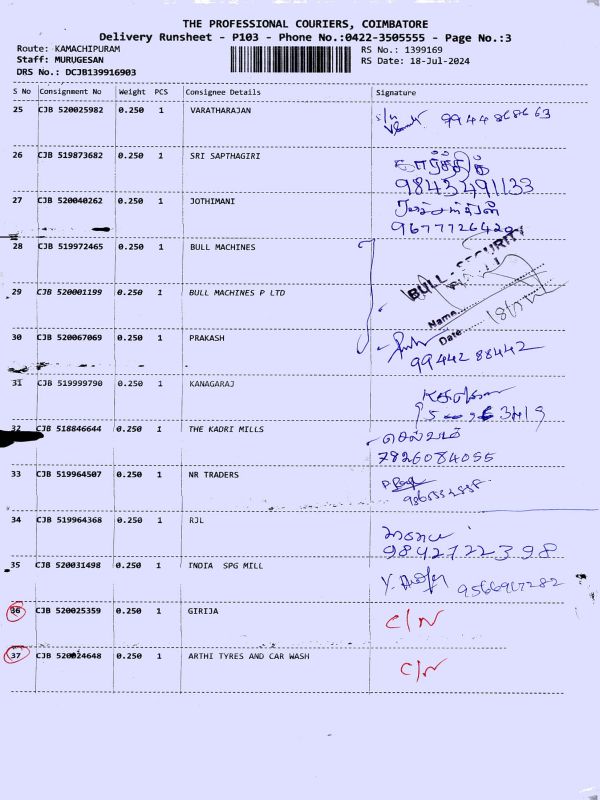 THE PROFESSIONAL COURIERS, COIMBATORE
Delivery Runsheet - P103 - Phone No.:0422-3505555 - Page No.:3
Route: KAMACHIPURAM RS No.: 1399169
Staff: MURUGESAN RS Date: 18-Jul-2024
DRS No.: DCJB139916903
S No Consignment No Weight PCS Consignee Details Signature
25 CJB 520025982 0.250 1 VARATHARAJAN 9944868663
26 CJB 519873682 0.250 1 SRI SAPTHAGIRI கார்த்திக்
9843491133
27 CJB 520040262 0.250 1 JOTHIMANI
28 CJB 519972465 0.250 1 BULL MACHINES
BULL - SECURITY
29 CJB 520001199 0.250 1 BULL MACHINES P LTD
Name....
Date.....
30 CJB 520067069 0.250 1 PRAKASH
9944288442
31 CJB 519999790 0.250 1 KANAGARAJ
32 CJB 518846644 0.250 1 THE KADRI MILLS செல்வம்
7826084055
33 CJB 519964507 0.250 1 NR TRADERS
34 CJB 519964368 0.250 1 RJL
9842722398
35 CJB 520031498 0.250 1 INDIA SPG MILL 9566917282
36 CJB 520025359 0.250 1 GIRIJA C/N
37 CJB 520024648 0.250 1 ARTHI TYRES AND CAR WASH C/N